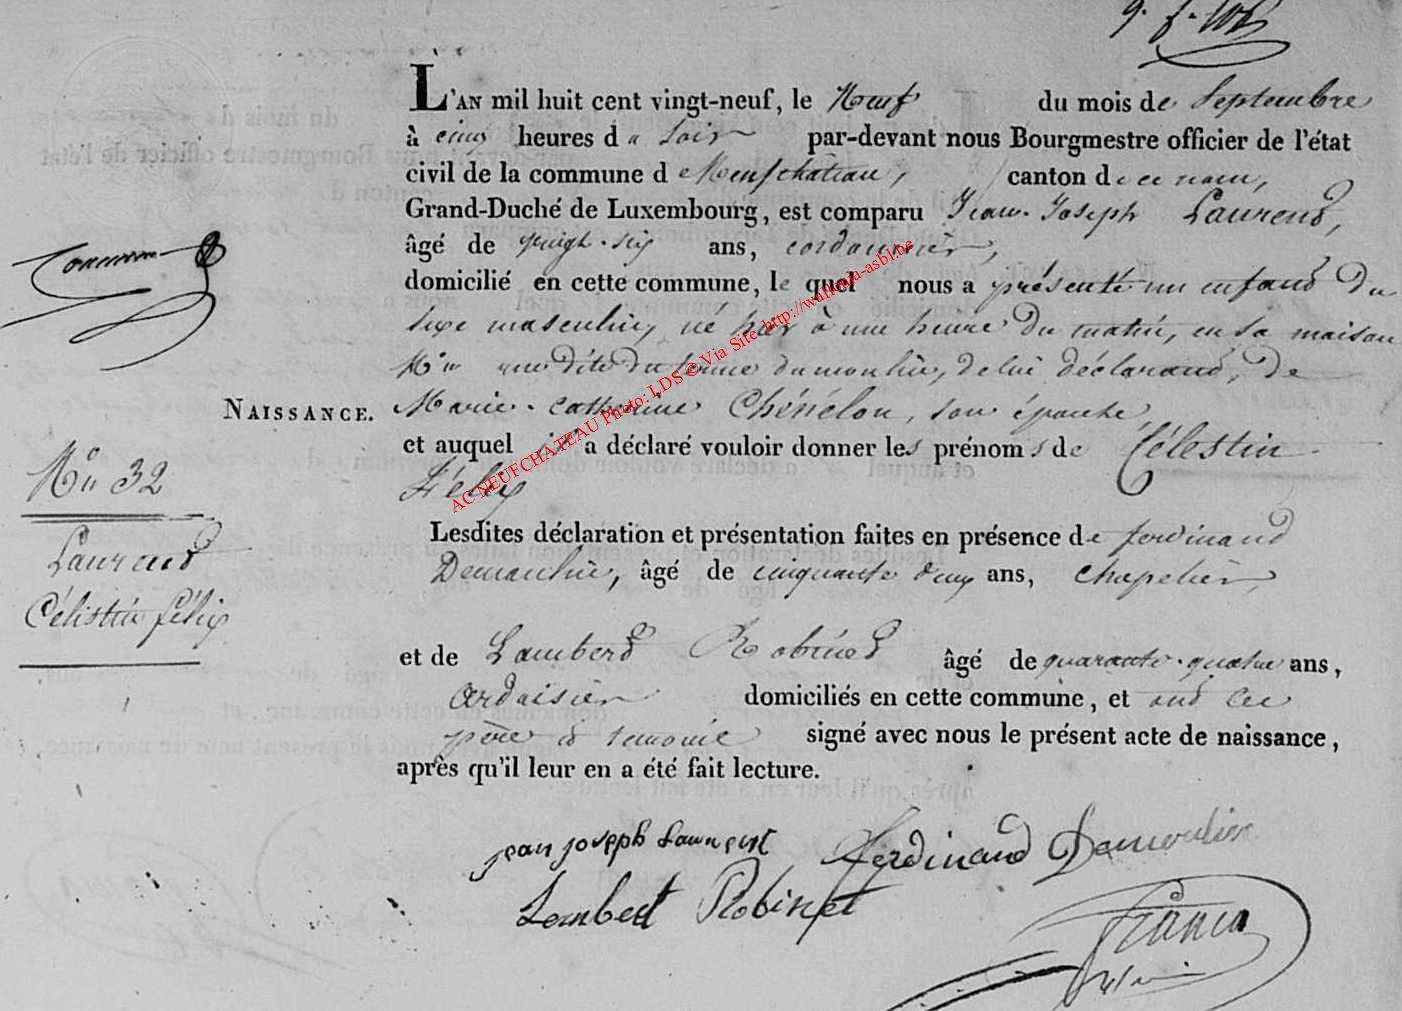 L'AN mil huit cent vingt-neuf, le Neuf du mois de Septembre
à cinq heures du Soir par-devant nous Bourgmestre officier de l'état
civil de la commune de Neufchateau, canton de ce nom,
Grand-Duché de Luxembourg, est comparu Jean-Joseph Laurent,
âgé de vingt-six ans, cordonnier,
domicilié en cette commune, le quel nous a présenté un enfant du
sexe masculin, né hier à une heure du matin, en sa maison
N° rue dite du terme du moulin, de lui déclarant, de
Marie-Catherine Chénélou, son épouse
et auquel il a déclaré vouloir donner les prénoms de Célestin
Félix
Lesdites déclaration et présentation faites en présence de ferdinand
Demoulin, âgé de cinquante deux ans, chapelier,
et de Lambert Robinet âgé de quarante-quatre ans,
ardoisier domiciliés en cette commune, et ont les
père et témoins signé avec nous le présent acte de naissance,
après qu'il leur en a été fait lecture.
jean joseph Laurent
ferdinand Demoulin
Lambert Robinet
NAISSANCE.
N° 32
Laurent
Célestin félix
AC NEUFCHATEAU Photo: LDS © Via Site: http://wallonia-asbl.be